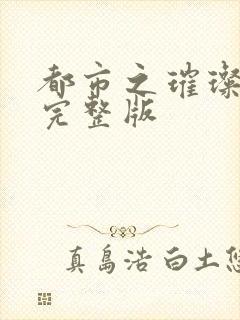 都市之璀璨
完整版
真島浩 白土悠